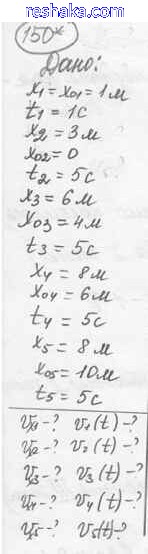 reshak.com
150*
Дано:
x₁ = x₀₁ = 1 м
t₁ = 1с
x₂ = 3 м
x₀₂ = 0
t₂ = 5с
x₃ = 6 м
x₀₃ = 4 м
t₃ = 5с
x₄ = 8 м
x₀₄ = 6 м
t₄ = 5с
x₅ = 8 м
x₀₅ = 10 м
t₅ = 5с
v₁-? v₁(t)-?
v₂-? v₂(t)-?
v₃-? v₃(t)-?
v₄-? v₄(t)-?
v₅-? v₅(t)-?